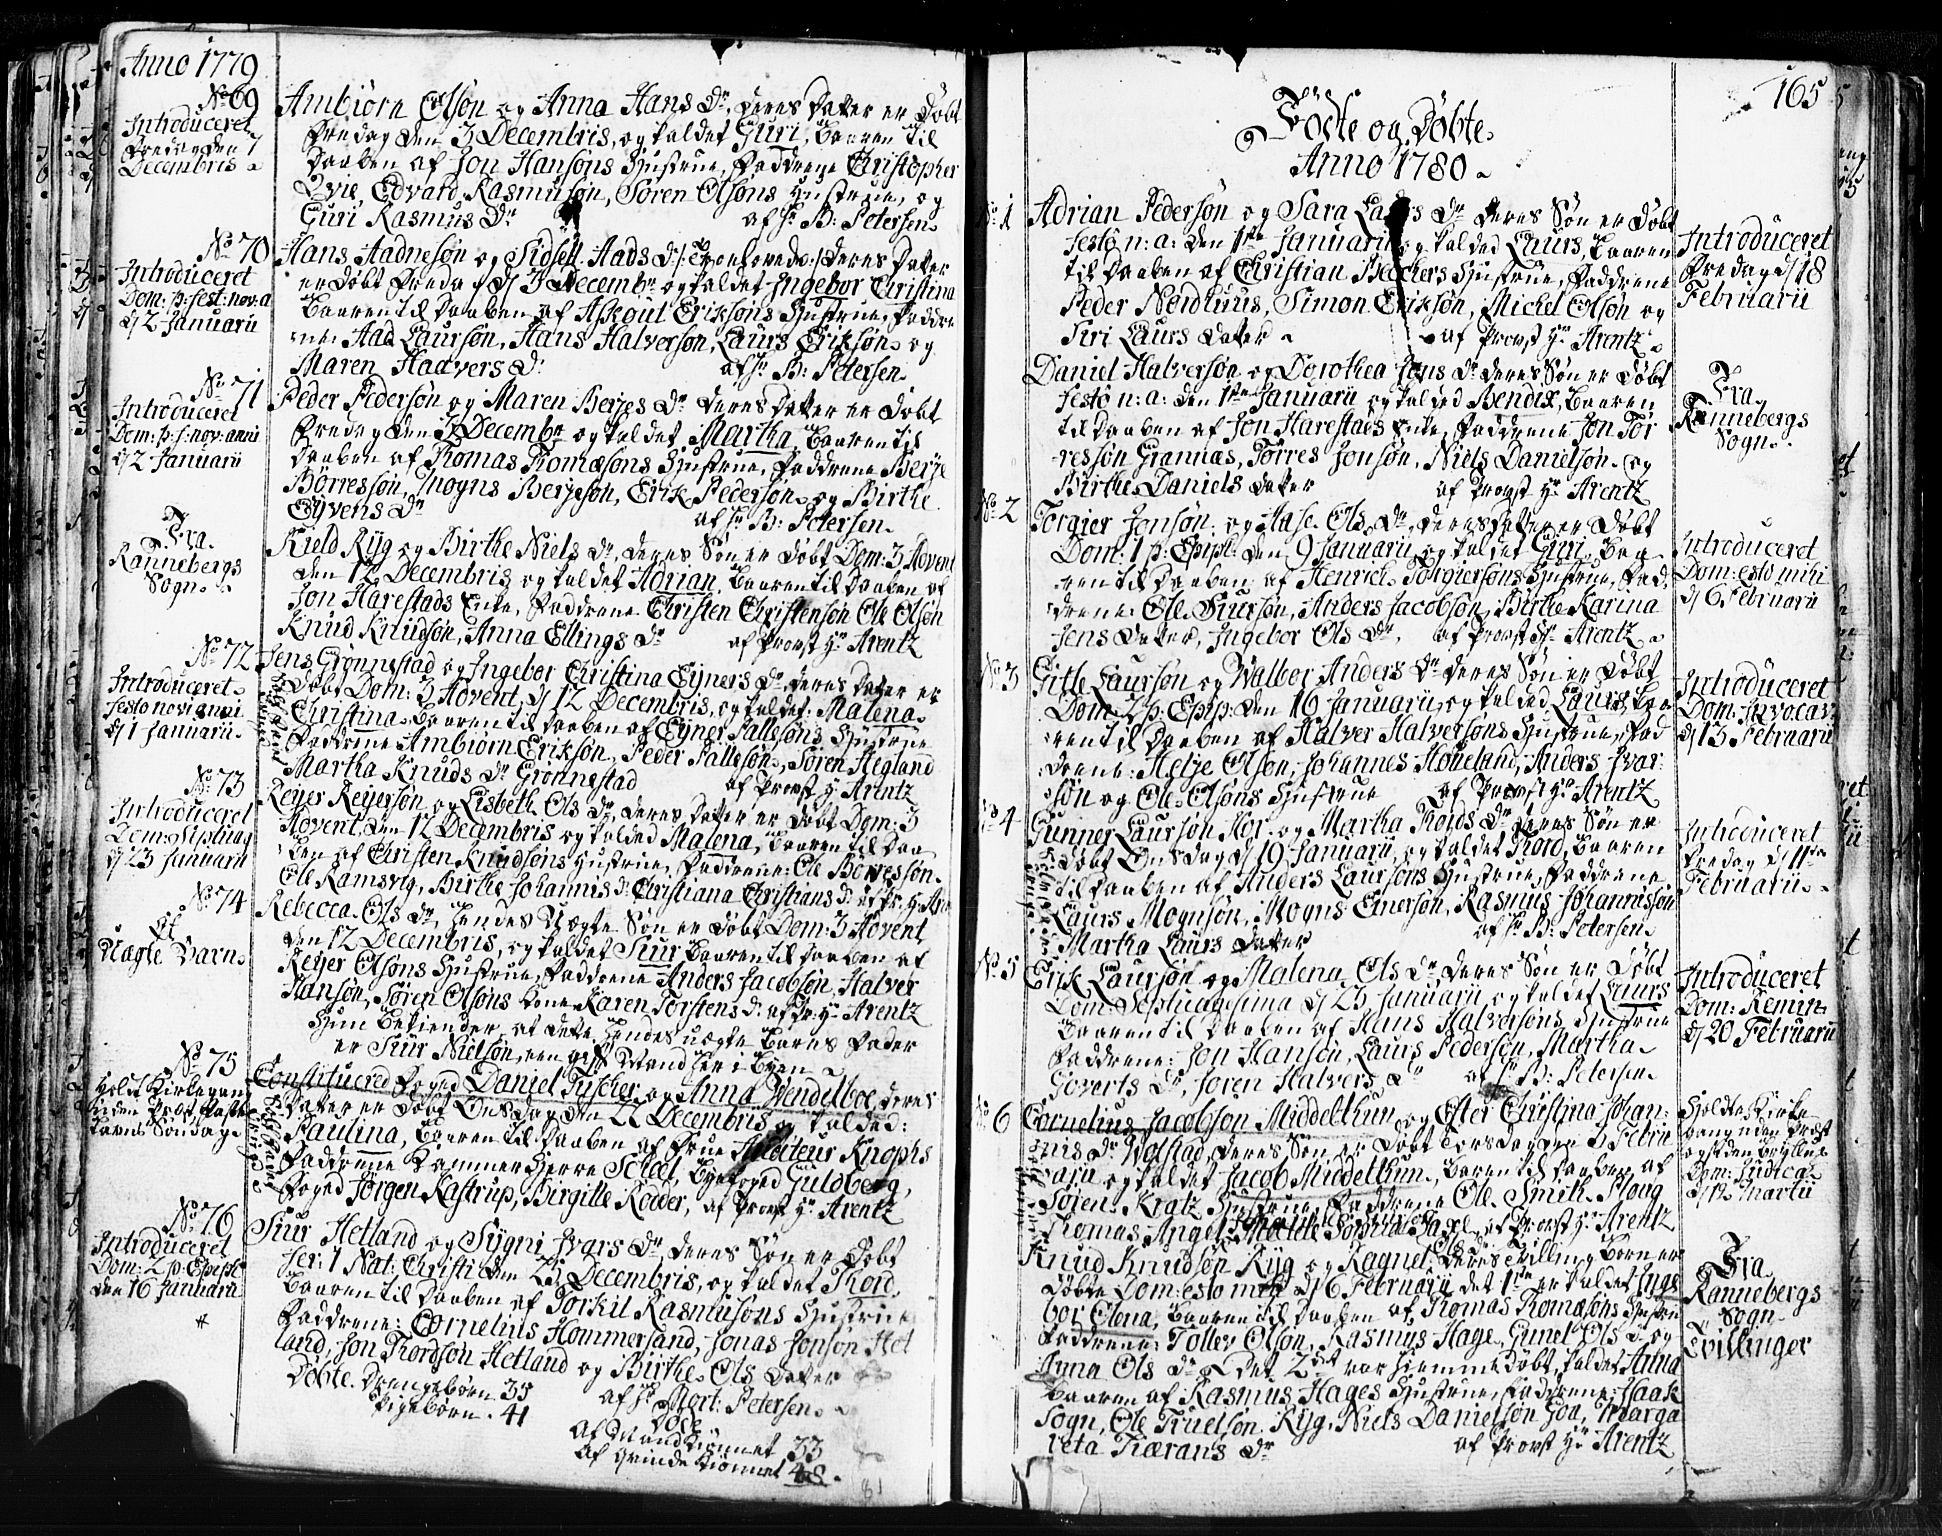 Anno 1779
No 69
Introduceret
Fredag den 7
Decembris
Ambiörn Olsøn og Anna Hans Dr, deres Datter er Døbt
Fredag den 3 Decembris, og kaldet Guri, baaren til
Daaben af Jon Hansøns Hustrue, Faddrene Christopher
Qvie, Edvard Rasmusøn, Søren Olsøns Hustrue, og
Guri Rasmus Dr af Hr B: Petersen
No 70
Introduceret
Dom: p: fest: nov: a
d/ 2 Januarii
Hans Aadnesøn og Sidsell Aads Dr /: Trolovede :/ deres Datter
er døbt Fredag d/ 3 Decembr og kaldet Ingebor Christina
baaren til Daaben af Askout Eriksøns Hustrue, Faddre
rne: Aad Laursøn, Hans Halversøn, Laurs Eriksøn og
Maren Haavers D: af Hr B: Petersen
No 71
Introduceret
Dom: p: f: nov: anni
d/ 2 Januarii
Peder Pedersøn og Maren Berjes Dr deres Datter er Døbt
Fredag den 3 Decembr og kaldet Martha, baaren til
Daaben af Thomas Thomæsøns Hustrue, Faddrene Berje
Börresøn, Mogns Berjesøn, Erik Pedersøn og Birthe
Eyvens Dr af Hr B: Petersen
Fra
Rannebergs
Sogn
Kield Ryg og Birthe Niels Dr, deres Søn er Døbt Dom: 3 Advent
den 12 Decembris og kaldet Adrian, baaren til Daaben af
Jon Harestads Enke, Faddrene Christen Christensøn Ole Olsøn
Knud Knudsøn, Anna Ellings Dr af Provst Hr Arentz
No 72
Introduceret
festo novi anni
d/ 1 Januarii
Jens Grönnestad og Ingebor Christina Eyners Dr, deres Datter er
Døbt Dom: 3 Advent, d/ 12 Decembris, og kaldet: Malena
Christina, baaren til Daaben af Eyner Pallesøns Hustrue
Faddrene Ambiörn Eriksøn, Peder Pallesøn, Søren Hegland
Martha Knuds Dr Grönnestad af Provst Hr Arentz
No 73
Introduceret
Dom: Septuag
d/ 23 Januarii
Reyer Reyersøn og Lisbeth Ols Dr, deres Datter er Døbt Dom: 3
Advent, den 12 Decembris og kaldet Malena, baaren til Daa
ben af Christen Knudsøns Hustrue, Faddrene: Ole Børresøn
Ole Ramsvig, Birthe Johannis D: Christiana Christians D: af Pr: Hr Are
No 74
Et
Uægte Barn
Rebecca Ols Dr, hendes Uægte Søn er Døbt Dom: 3 Advent
den 12 Decembris, og kaldet Siur baaren til Daaben af
Reyer Olsøns Hustrue, Faddrene Anders Jacobsøn, Halver
Hansøn, Søren Olsøns Kone, Karen Torstens D: af Pr: Hr Arentz
Hun bekiender at dette hendes uægte Barns Fader
er Siur Nielsøn, een gift Mand her i Byen
No 75
Holdt Kirkegang
uden Præst
Constitueret Foged Daniel Fischer og Anna Wendelboe deres
Datter er Døbt Onsdag den 22 Decembris og kaldet:
Paulina, baaren til Daaben af Frue Auditeur Knophs
Faddrene Kammer Herre Scheel, Byefoged Guldberg,
Foged Jørgen Kastrup, Birgitte Roeder, af Provst Hr Arentz
No 76
Introduceret
Dom: 2 p: Epiph
den 16 Januarii
Siur Hetland og Sygni Ivars Dr, deres Søn er Døbt
fer: 1 Nat: Christi den 25 Decembris, og kaldet Thord
baaren til Daaben af Torkil Rasmusøns Hustrue
Faddrene: Cornelius Hommersand, Jonas Jonsøn Het
land, Jon Thordsøn Hetland og Birthe Ols Datter
af Hr Mort: Petersen
Døbte Drengebørn 35
Pigebørn 41
Døde
Af Mandkiønnet 33
Af Qvindekiønnet 48
81
165
Födte og Döbte
Anno 1780
No 1
Adrian Pedersøn og Sara Laurs Dr deres Søn er Døbt
festo n: a: den 1ste Januarii og kaldet Laurs, baaren
til Daaben af Christian Beckers Hustrue, Faddrene
Peder Nordhuus, Simon Eriksøn, Michel Olsøn og
Siri Laurs Datter af Provst Hr Arentz
Introduceret
Fredag d/ 18
Februarii
Daniel Halversøn og Dorothea Jons Dr deres Søn er Døbt
festo n: a: den 1ste Januarii og kaldet Bendix, baaren
til Daaben af Jon Harestads Enke, Faddrene Jon Tör
resøn Grannas, Törres Jonsøn, Niels Danielsøn og
Birthe Daniels Datter af Provst Hr Arentz
Fra
Rannebergs
Sogn
No 2
Torgier Jonsøn og Aase Ols Dr, deres Datter er Døbt
Dom: 1 p: Epiph: den 9 Januarii, og kaldet Guri, baa
ren til Daaben af Henrich Torgiersøns Hustrue, Fad
drene Ole Siursøn, Anders Jacobsøn, Birthe Karina
Jens Datter, Ingebor Ols Dr, af Provst Hr Arentz
Introduceret
Dom: esto mihi
d/ 6 Februarii
No 3
Gitle Laursøn og Walbor Anders Dr deres Søn er Døbt
Dom: 2 p: Epip: den 16 Januarii, og kaldet Laurs, baa
ren til Daaben af Halver Halversøns Hustrue, Fad
drene: Helje Olsøn, Johannes Höveland, Anders Ivar
søn og Ole Olsøns Hustrue af Provst Hr Arentz
Introduceret
Dom: Invocav
d/ 13 Februarii
No 4
Gunner Laursøn og Martha Thords Dr deres Søn er
Døbt Onsdag d/ 19 Januarii, og kaldet Thord, baaren
til Daaben af Anders Laursøns Hustrue, Faddrene
Laurs Mognsøn, Mogns Einersøn, Rasmus Johannissøn
Martha Laurs Datter af Hr B: Petersen
Introduceret
Fredag d/ 11te
Februarii
No 5
Erik Laursøn og Malena Ols Dr deres Søn er Døbt
Dom: Septuagesima d/ 23 Januarii, og kaldet Laurs
baaren til Daaben af Hans Halversøns Hustrue
Faddrene: Jon Hansøn, Laurs Pedersøn, Martha
Goverts Dr, Joren Halvers Dr af Hr B: Petersen
Introduceret
Dom: Remin
d/ 20 Februarii
No 6
Cornelius Jacobsøn Middelthun og Ester Christina Johan
nis Dr Wolstad, deres Søn er Døbt Torsdag den 3 Febru
arii og kaldet Jacob Middelthun, baaren til Daaben af
Søren Kratz Hustrue, Faddrene Ole Smith Ploug
Thomas Angel, Mallle Sophia Gaxel af Provst Hr Arentz
Holdte Kirke
gang uden Præst
Dom: Judica
d/ 12 Martii
Knud Knudsøn Ryg og Ragnel Ols Dr deres Tvilling Børn er
Døbte Dom: esto mihi d/ 6 Februarii det 1ste er kaldet Inge
bor Olena, baaren til Daaben af Thomas Thomæsøns Hustrue
Faddrene: Tollev Olsøn, Rasmus Hage, Gunel Ols D: og
Anna Ols Dr. Det 2det var hiemmedøbt, kaldet Anna
baaren af Rasmus Hages Hustrue, Faddrene: Haak
Sogn, Ole Truelsøn Ryg, Niels Danielsøn Goa, Marga
reta Tiærans Dr af Provst Hr Arentz
Fra
Rannebergs
Sogn
Tvillinger